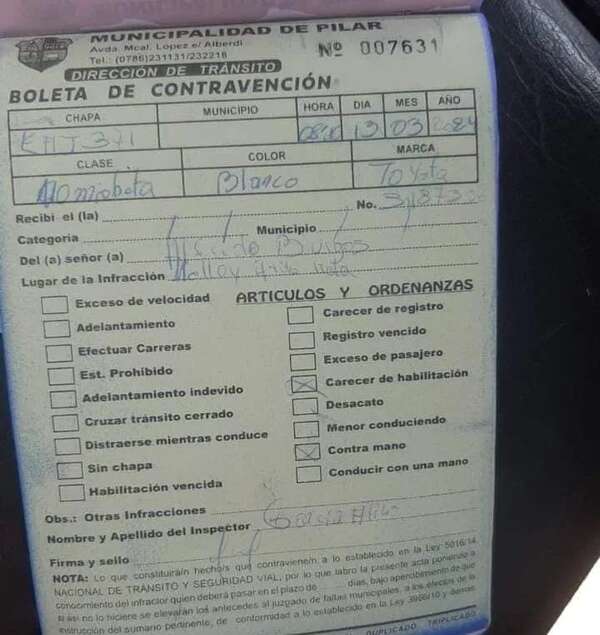 MUNICIPALIDAD DE PILAR
Avda. Mcal. López e/ Alberdi
Tel.: (0786)231131/232218
Nº 007631
DIRECCIÓN DE TRÁNSITO
BOLETA DE CONTRAVENCIÓN
CHAPA MUNICIPIO HORA DIA MES AÑO
371 13 03 2024
CLASE COLOR MARCA
Blanco Toyota
Recibí el (la) No.
Categoría Municipio
Del (a) señor (a)
Lugar de la Infracción
Exceso de velocidad ARTICULOS Y ORDENANZAS
Adelantamiento Carecer de registro
Efectuar Carreras Registro vencido
Est. Prohibido Exceso de pasajero
Adelantamiento indevido Carecer de habilitación
Cruzar tránsito cerrado Desacato
Distraerse mientras conduce Menor conduciendo
Sin chapa Contra mano
Habilitación vencida Conducir con una mano
Obs.: Otras Infracciones
Nombre y Apellido del Inspector
Firma y sello
NOTA: Lo que constituirá/n hecho/s que contraviene/n a lo establecido en la Ley 5016/14
NACIONAL DE TRÁNSITO Y SEGURIDAD VIAL, por lo que labro la presente acta poniendo a
conocimiento del infractor quien deberá pasar en el plazo de días, bajo apercibimiento de que
si no lo hiciere se elevarán los antecedentes al juzgado de faltas municipales, a los efectos de la
instrucción del sumario pertinente, de conformidad a lo establecido en la Ley 3966/10 y demás
DUPLICADO TRIPLICADO